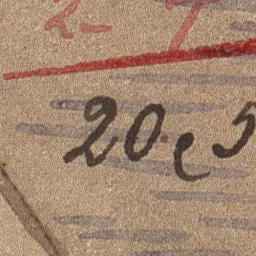 2-
20 e 5